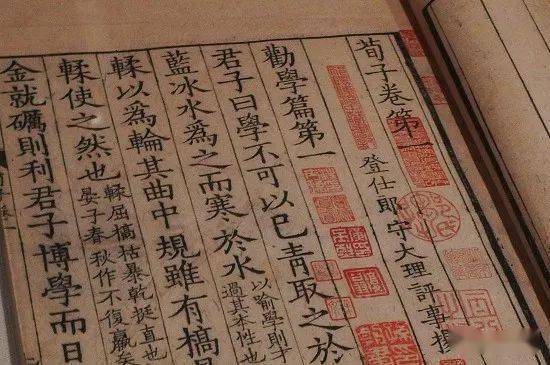 荀子卷第一
登仕郎守大理評事楊
勸學篇第一
君子曰學不可以已青取之於
藍冰水爲之而寒於水以喻學則才過其本性也
輮以爲輪其曲中規雖有槁
輮使之然也輮屈槁枯暴乾挺直也晏子春秋作不復贏矣
金就礪則利君子博學而日